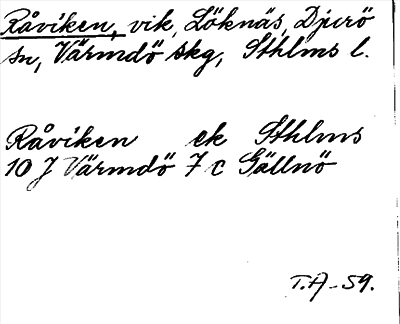 Råviken, vik, Löknäs, Djurö
sn, Värmdö skg, Sthlms l.
Råviken ek Sthlms
10 J Värmdö 7 c Gällnö
T.A-59.